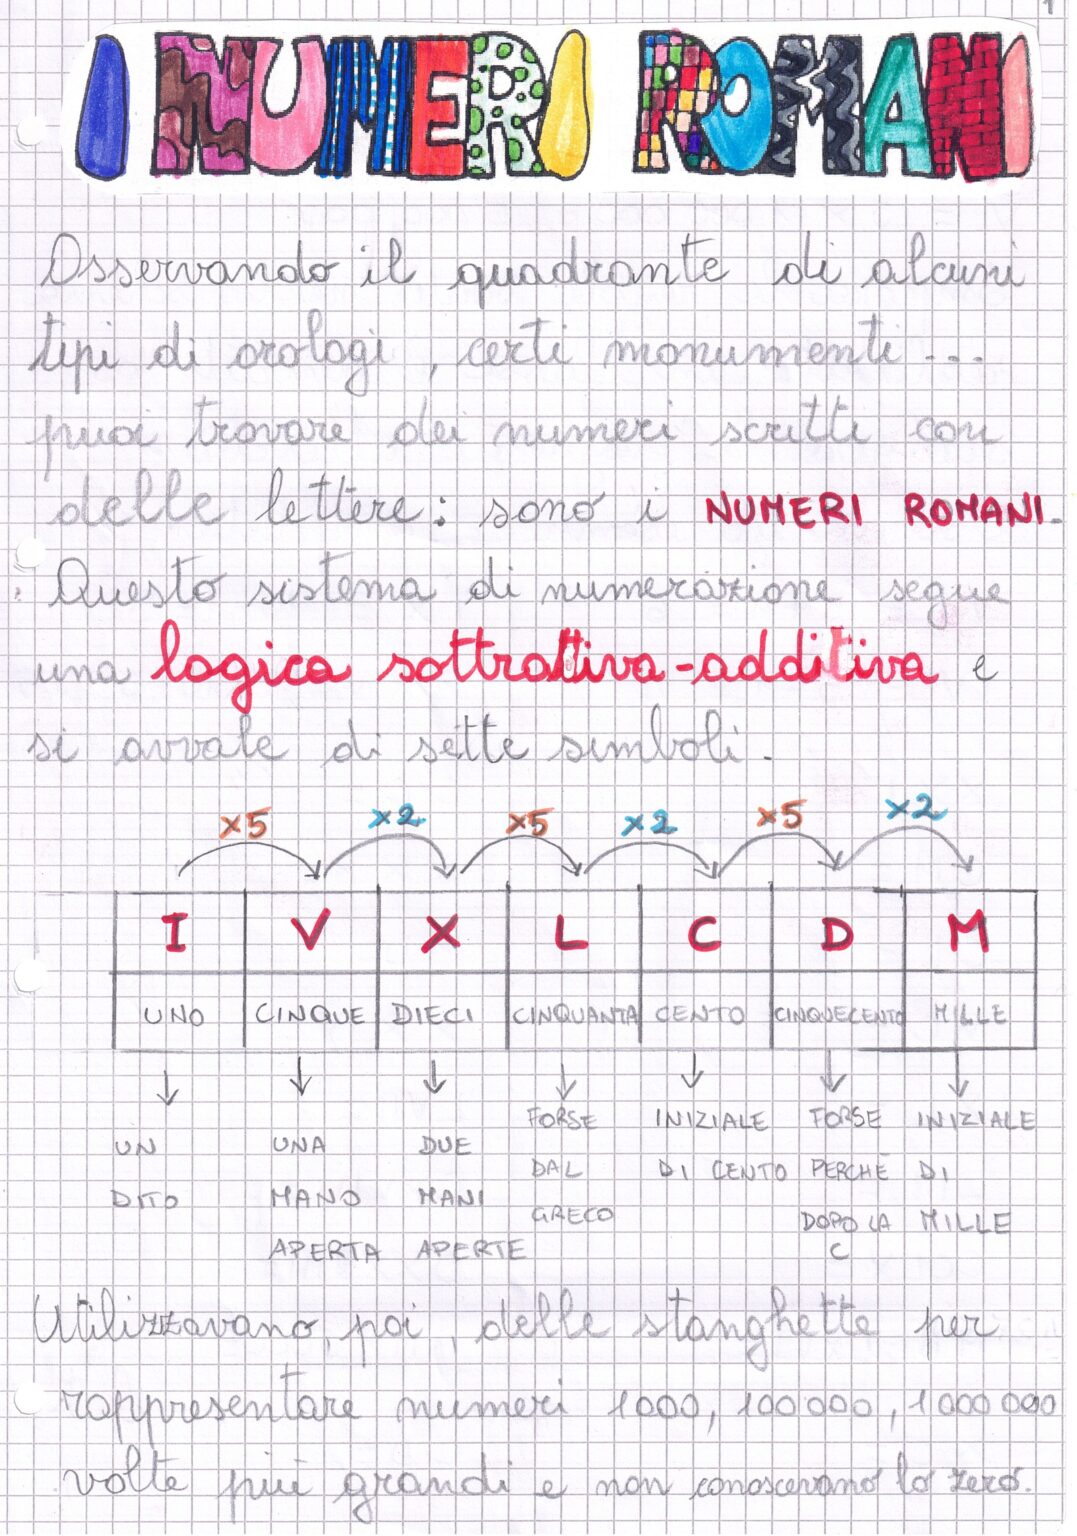 I NUMERI ROMANI
Osservando il quadrante di alcuni
tipi di orologi, certi monumenti...
puoi trovare dei numeri scritti con
delle lettere: sono i NUMERI ROMANI.
Questo sistema di numerazione segue
una logica sottrattiva-additiva e
si avvale di sette simboli.
x5 x2 x5 x2 x5 x2
I V X L C D M
UNO CINQUE DIECI CINQUANTA CENTO CINQUECENTO MILLE
UN DITO
UNA MANO APERTA
DUE MANI APERTE
FORSE DAL GRECO
INIZIALE DI CENTO
FORSE PERCHÉ DOPO LA C
INIZIALE DI MILLE
Utilizzavano, poi, delle stanghette per
rappresentare numeri 1000, 100000, 1000000
volte più grandi e non conoscevano lo zero.